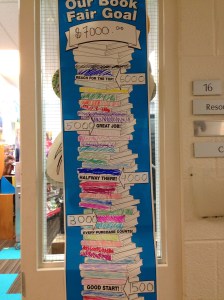 Our Book
Fair Goal
$7000.00
REACH FOR THE TOP!
5000
GREAT JOB!
HALFWAY THERE!
3000
EVERY PURCHASE COUNTS!
GOOD START!
1500
16
Reso
C